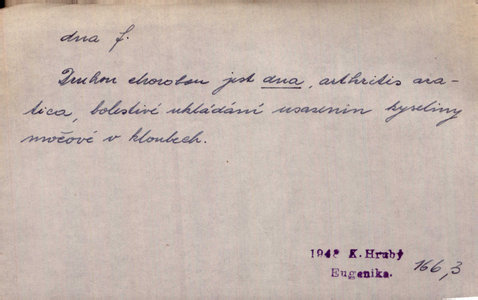 dna f.
Druhou chorobou jest dna, arthritis ura-
tica, bolestivé ukládání usazenin kyseliny
močové v kloubech.
1948 K. Hrubý
Eugenika. 166,3